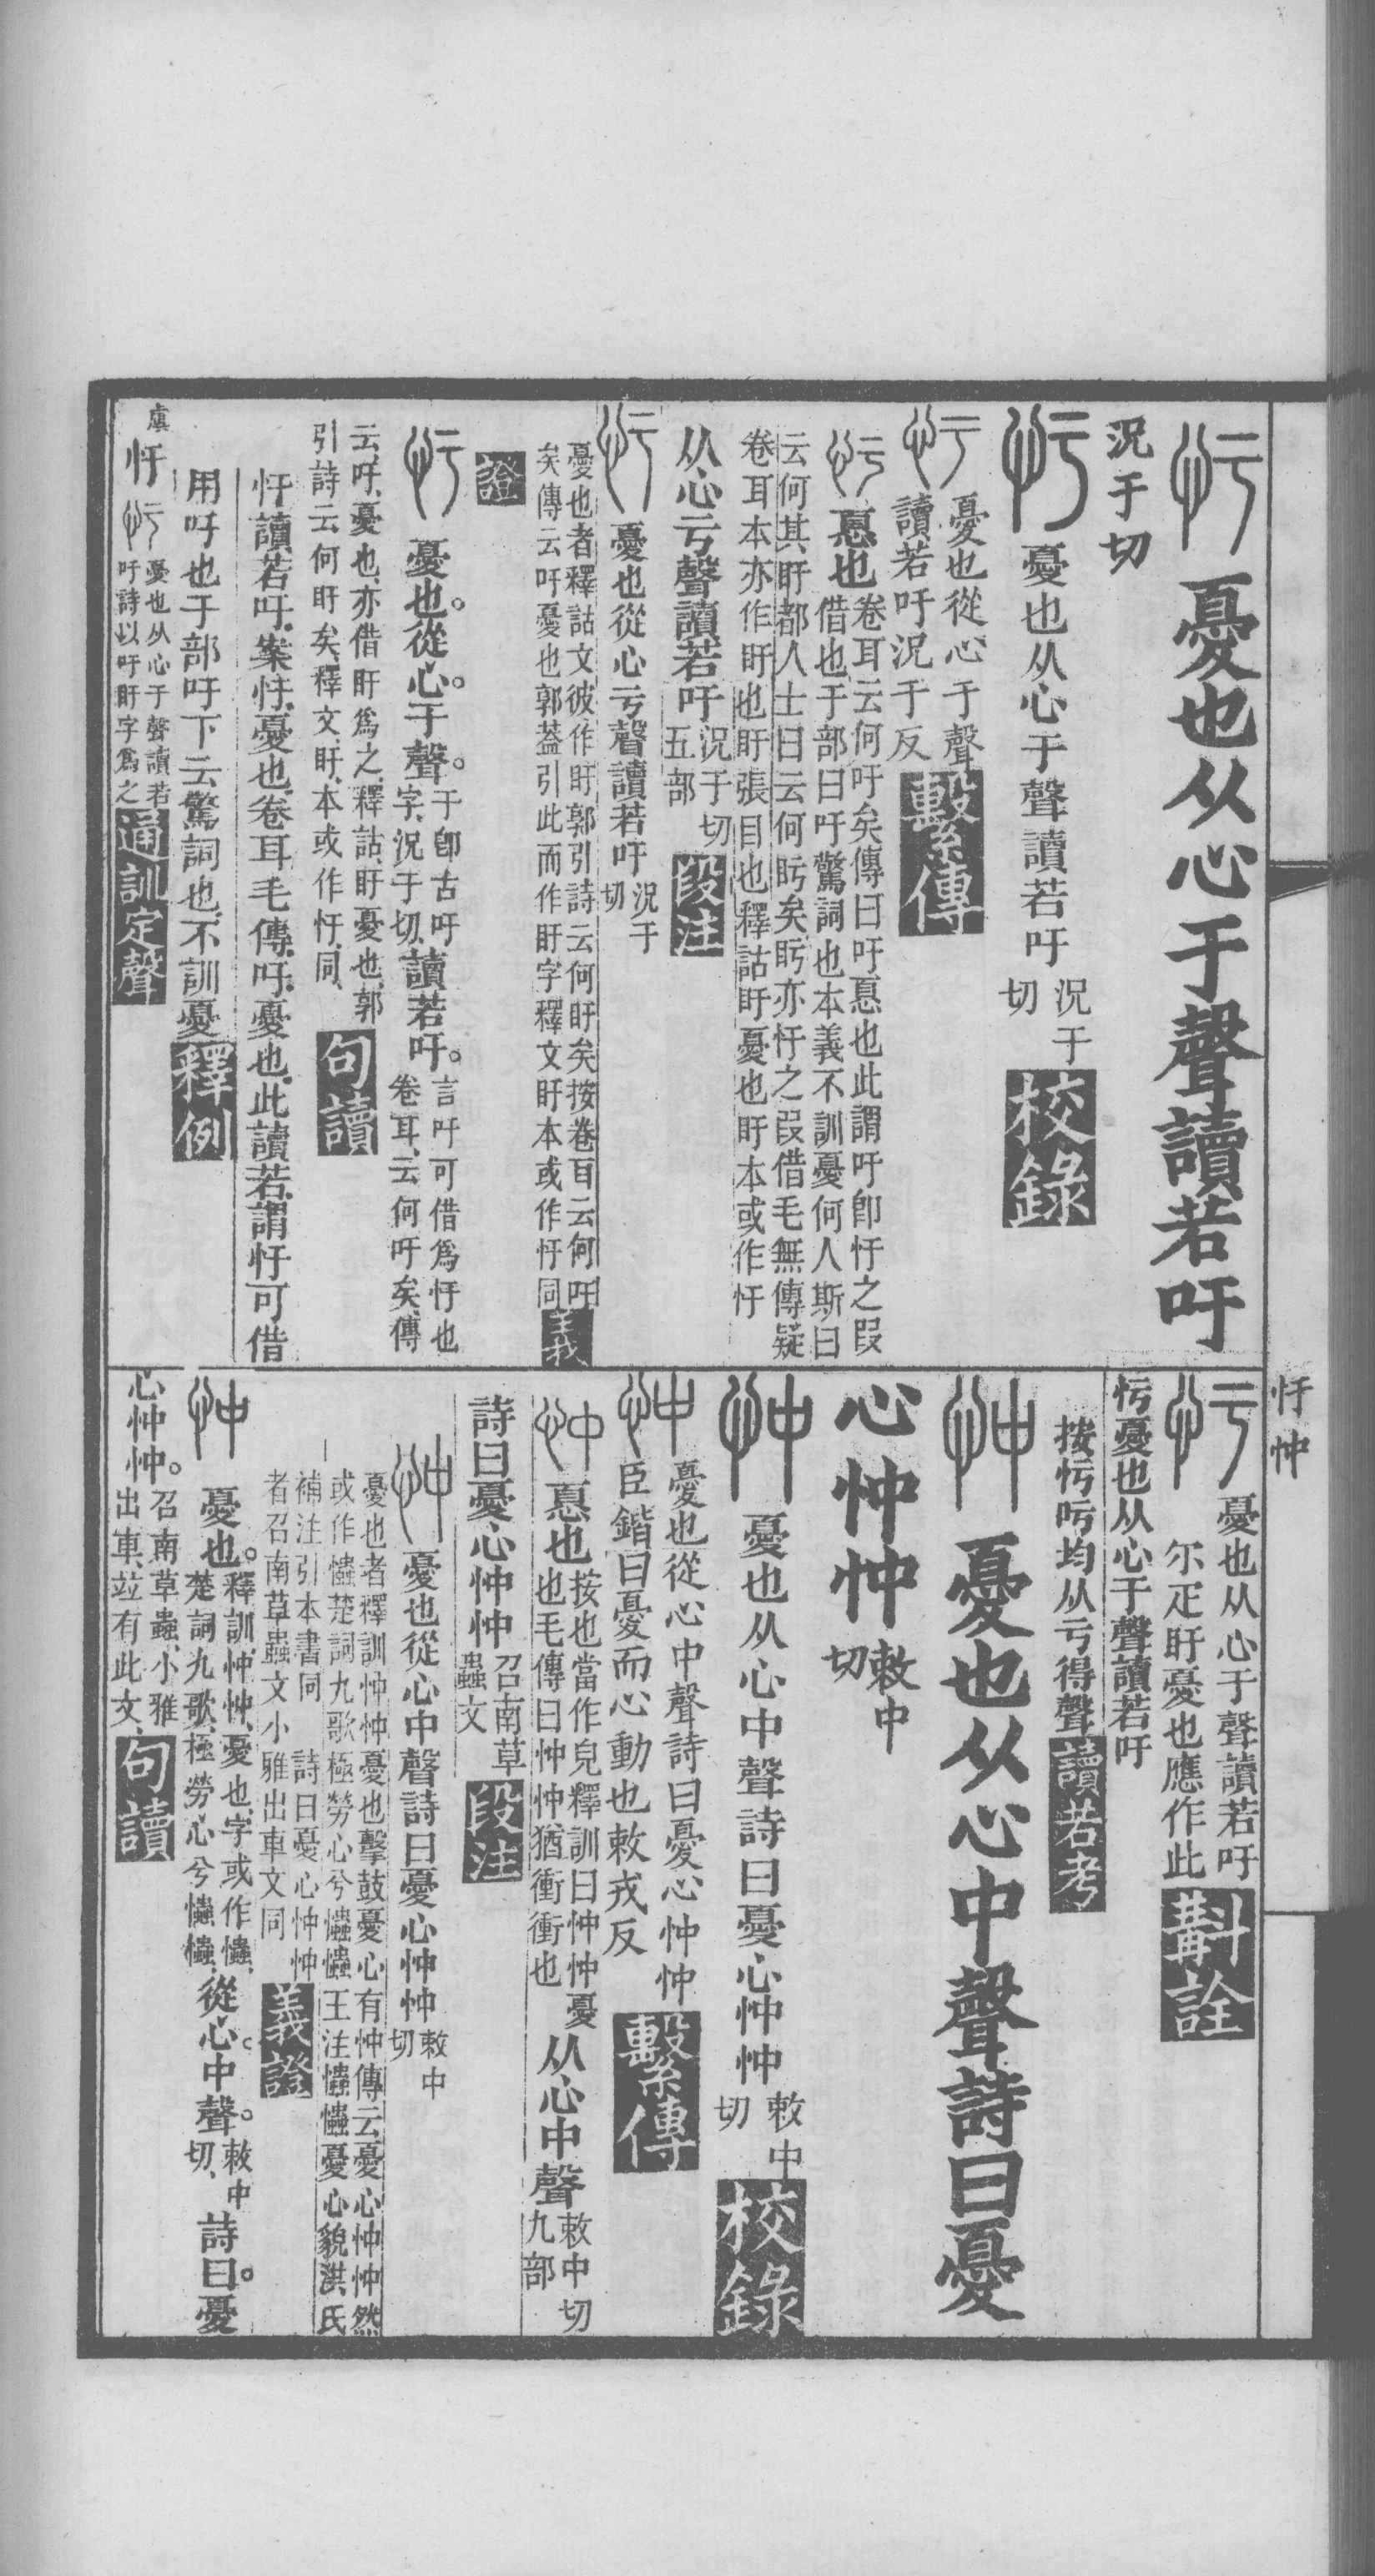 憂也从心于聲讀若吁
況于切
憂也从心于聲讀若吁況于切校錄
憂也從心于聲
讀若吁況于反繫傳
㥑也卷耳云何吁矣傳曰吁㥑也此謂吁卽忓之叚
借也于部曰吁驚詞也本義不訓憂何人斯曰
云何其盱都人士曰云何盱矣盱亦忓之叚借毛無傳疑
卷耳本亦作盱也盱張目也釋詁盱憂也盱本或作忓
从心亏聲讀若吁況于切五部段注
憂也從心亏聲讀若吁況于切
憂也者釋詁文彼作盱郭引詩云何盱矣按卷耳云何吁
矣傳云吁憂也郭葢引此而作盱字釋文盱本或作忓同義
證
憂也。從心。于聲。于卽古吁字、況于切、讀若吁。言吁可借爲忓也卷耳、云何吁矣、傳
云、吁、憂也、亦借盱爲之、釋詁、盱憂也、郭
引詩云、何盱矣、釋文、盱、本或作忓、同、句讀
忓讀若吁、案忓、憂也、卷耳毛傳、吁、憂也、此讀若、謂忓可借
用吁也于部吁下云驚詞也、不訓憂釋例
虞
忓憂也从心于聲讀若
吁詩以吁盱字爲之通訓定聲
忓忡
憂也从心于聲讀若吁
尓疋盱憂也應作此斠詮
忓憂也从心于聲讀若吁
按忓吁均从亏得聲讀若考
憂也从心中聲詩曰憂
心忡忡敕中切
憂也从心中聲詩曰憂心忡忡敕中切校錄
憂也從心中聲詩曰憂心忡忡
臣鍇曰憂而心動也敕戎反繫傳
㥑也按也當作皃釋訓曰忡忡憂也毛傳曰忡忡猶衝衝也从心中聲敕中切九部
詩曰憂心忡忡召南草蟲文段注
憂也從心中聲詩曰憂心忡忡敕中切
憂也者釋訓忡忡憂也擊鼓憂心有忡傳云憂心忡忡然
或作㦕楚詞九歌極勞心兮㦕㦕王注㦕㦕憂心貌洪氏
補注引本書同 詩曰憂心忡忡
者召南草蟲文小雅出車文同義證
憂也。釋訓、忡忡、憂也、字或作㦕、楚詞九歌、極勞心兮㦕㦕、從心。中聲。敕中切、詩曰。憂
心忡忡。召南草蟲、小雅出車、竝有此文、句讀